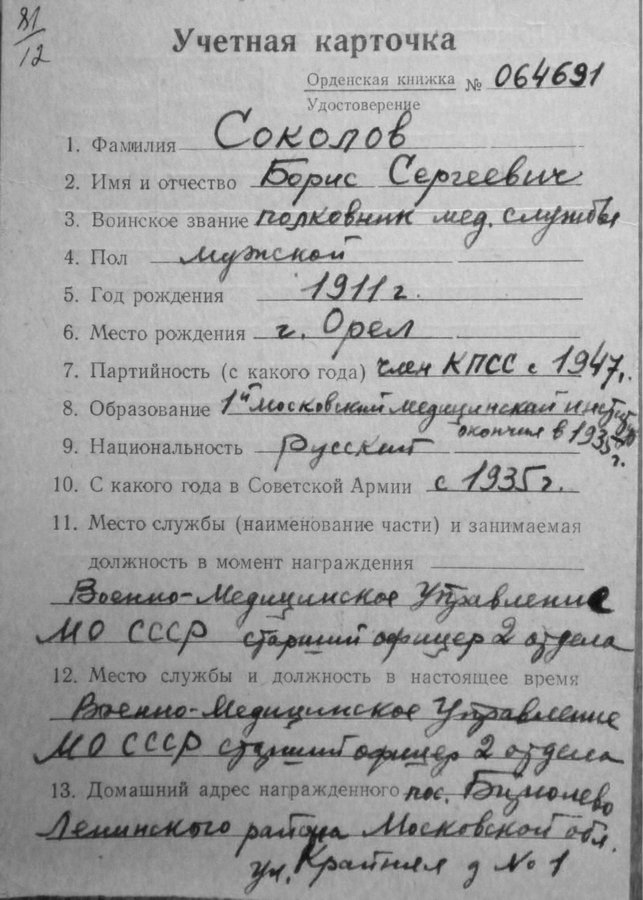 81/12
Учетная карточка
Орденская книжка № 064691
Удостоверение
1. Фамилия Соколов
2. Имя и отчество Борис Сергеевич
3. Воинское звание полковник мед. службы
4. Пол мужской
5. Год рождения 1911 г.
6. Место рождения г. Орел
7. Партийность (с какого года) член КПСС с 1947г.
8. Образование 1й Московский медицинский институт
окончил в 1935 г.
9. Национальность Русский
10. С какого года в Советской Армии с 1935 г.
11. Место службы (наименование части) и занимаемая
должность в момент награждения
Военно-Медицинское Управление
МО СССР старший офицер 2 отдела
12. Место службы и должность в настоящее время
Военно-Медицинское Управление
МО СССР старший офицер 2 отдела
13. Домашний адрес награжденного пос. Бирюлево
Ленинского района Московской обл.
ул. Крайняя д № 1